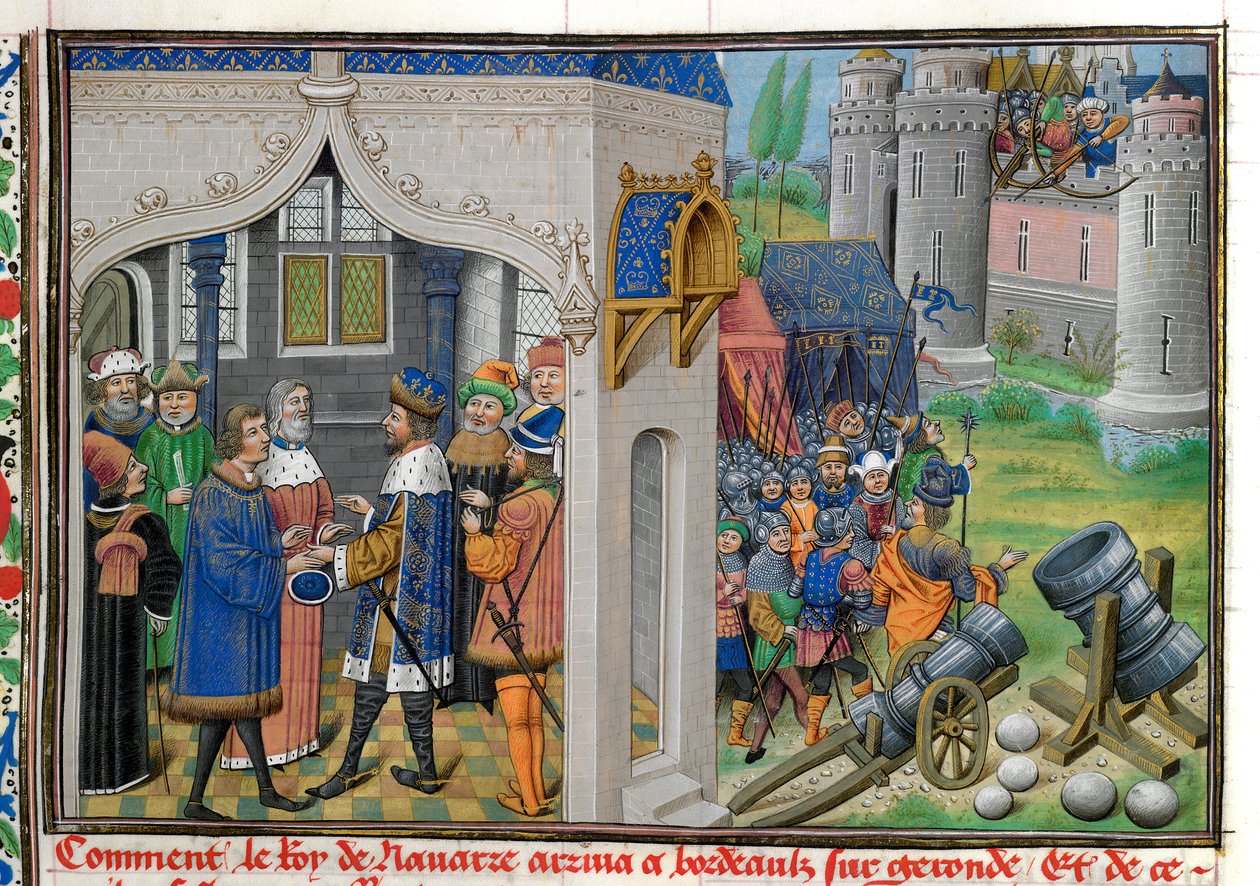 Comment le Roy de Nauarre arriua a bordeaulx sur geronde / Et de ce -